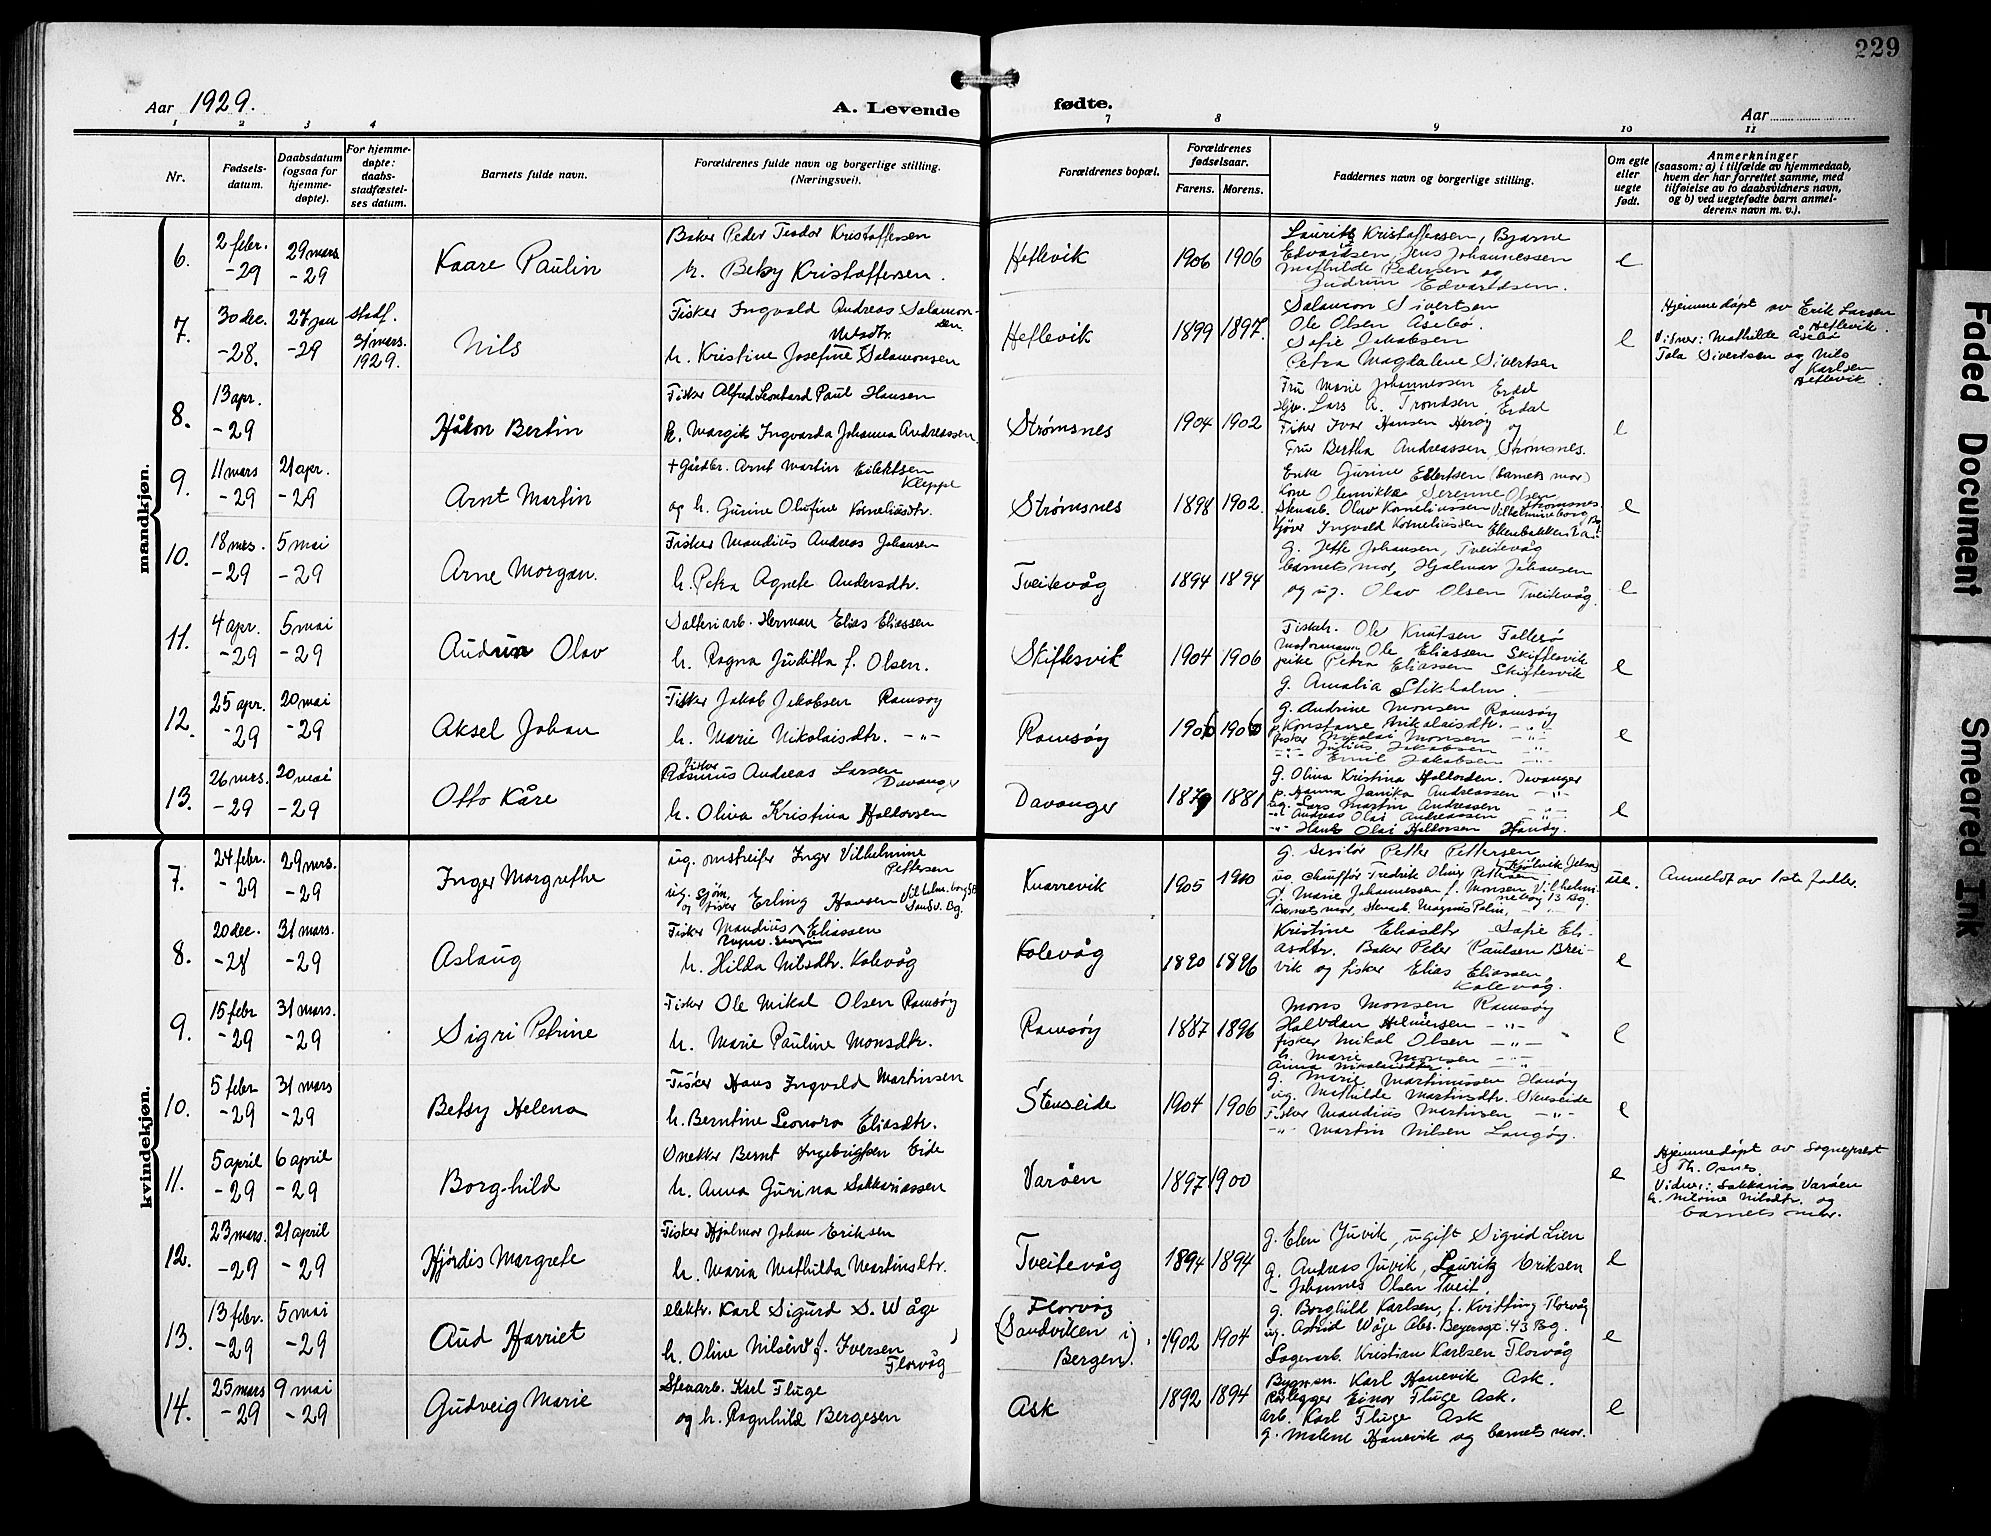 229
Aar 1929.
A. Levende
fødte.
Aar
1 2 3 4 7 8 9 10 11
Nr.
Fødsels-
datum.
Daabsdatum
(ogsaa for
hjemme-
døpte).
For hjemme-
døpte:
daabs-
stadfæstel-
ses datum.
Barnets fulde navn.
Forældrenes fulde navn og borgerlige stilling.
(Næringsvei).
Forældrenes bopæl.
Forældrenes
fødselsaar.
Farens. Morens.
Faddernes navn og borgerlige stilling.
Om egte
eller
uegte
født.
Anmerkninger
(saasom: a) i tilfælde av hjemmedaab,
hvem der har forrettet samme, med
tilføielse av to daabsvidners navn,
og b) ved uegtefødte barn anmel-
derens navn m. v.).
mandkjøn.
6.
2 febr.
-29
29 mars
-29
Kaare Paulin
Baker Peder Teodor Kristoffersen
h. Betsy Kristoffersen.
Heflevik
1906 1906
Laurits Kristoffersen, Bjarne
Edvardsen, Jens Johannessen
Mathilde Pedersen og
Gudrun Edvardsen.
e
7.
30 dec.
-28.
27 jan
-29
stadf.
31 mars.
1929.
Nils
Fisker Ingvald Andreas Salamon-
sen
h. Kristine Josefine Salamonsen
Heflevik
1899 1897.
Salamon Sivertsen
Ole Olsen Åsebø.
Sofie Jakobsen
Petra Magdalene Sivertsen
e
Hjemmedøpt av Erik Larsen
Heflevik.
Vidner: Mathilde Åsebø
Tola Sivertsen og Nils
Karlsen
Heflevik.
8.
13 apr.
-29
Håkon Bertin
Fisker Alfred Leonhard Paul Hansen
h. Margit Ingvarda Johanna Andreassen.
Strømsnes
1904 1902
Fru Marie Johannessen Erdal
Lars A. Trondsen, Erdal
Fisker Ivar Hansen Herøy og
Fru Bertha Andreassen, Strømsnes.
e
9.
11 mars
-29
21 apr.
-29
Arnt Martin
+ Gårdbr. Arnt Martin Eilertsen
Kleppe
og h. Gurine Olufine Korneliusdtr.
Strømsnes
1898 1902.
Enke Gurine Eilertsen (barnets mor)
Kone Olerikke Serenne Olsen
Strømsnes
Stenarb. Olav Korneliussen Vilhelmineborg
Kjører Ingvald Korneliussen
e
10.
18 mrs.
-29
5 mai
-29
Arne Morgan.
Fisker Mandius Andreas Johansen
h. Petra Agnete Andersdtr.
Tveitevåg
1894 1894
g. Jette Johansen, Tveitevåg
barnets mor, Hjalmar Johansen
og ug. Olav Olsen Tveitevåg.
e
11.
4 apr.
-29
5 mai
-29
Audun Olav
Salteriarb. Herman Elias Eliassen
h. Ragna Juditta f. Olsen.
Skiftesvik
1904 1906
Fiskeh. Ole Knutsen Follesø
Ole Eliassen Skiftesvik
pike Petra Eliassen Skiftesvik
g. Amalia Stikholm.
e
12.
25 apr.
-29
20 mai
-29
Aksel Johan
Fisker Jakob Jakobsen Ramsøy
h. Marie Nikolaisdtr. -"-
Ramsøy
1906 1906
g. Andrine Monsen Ramsøy
p. Konstanse Nikolaisdtr. -"-
fisker Nikolai Monsen -"-
-"- Julius Jakobsen -"-
-"- Emil Jakobsen -"-
e
13.
26 mrs.
-29
20 mai
-29
Otto Kåre
fisker
Rasmus Andreas Larsen
Davanger
h. Oliva Kristina Haldorsen
Davanger
1879 1881
g. Olina Kristina Haldorsen. Davanger
p. Hanna Janika Andreassen -"-
ug. Lars Martin Andreassen -"-
-"- Andreas Olai Andreassen -"-
-"- Hans Olai Haldorsen Hanøy.
e
kvindekjøn.
7.
24 febr.
-29
29 mrs.
-29
Inger Margrethe
ug. omstreifer Inger Vilhelmine
Pettersen
ug. sjøm.
og fisker Erling Hansen Vilhelm.borg 5B
Sandv. Bg.
Knarrevik
1905 1910
g. Petter Pettersen
chauffør Fredrik Oliver Pettersen
g. Marie Johannessen f. Monsen, Vilhelmi-
neborg 13 Bg.
Barnets mor, Stenarb. Magnus Palm, -"-
ue.
Anmeldt av 1ste fadder.
8.
20 dec.
-28
31 mars.
-29
Aslaug
Fisker Mandius Eliassen
h. Hilda Nilsdtr. Kolevåg
Kolevåg
1890 1896
Kristine Eliasdtr Sofie Eli-
asdtr. Baker Peder Paulsen Brei-
vik og fisker Elias Eliassen
Kolevåg.
e
9.
15 febr
-29
31 mars.
-29
Sigri Petrine
Fisker Ole Mikal Olsen Ramsøy
h. Marie Pauline Monsdtr.
Ramsøy
1887 1896
Mons Monsen Ramsøy
Halvdan Helmersen -"-
fisker Mikal Olsen -"-
h. Marie Monsen -"-
Anna Nikolaisdtr.
e
10.
5 febr
-29
31 mars
-29
Betsy Helena
Fisker Hans Ingvald Martinsen
h. Berntine Leonora Eliasdtr.
Stenseide
1904 1906
g. Marie Martinussen Hanøy
ug. Mathilde Martinsdtr. Stenseide
Fisker Mandius Martinsen -"-
-"- Martin Nilsen Langøy.
e
11.
5 april
-29
6 april
-29
Borghild
Snekker Bernt Ingebrigtsen Eide
h. Anna Gurina Sakkariassen
Varøen
1897 1900
e
Hjemmedøpt av Sogneprest
S. Th. Osnes.
Vidner: Sakkarias Varøen
h. Nilsine Nilsdtr. og
barnets mor.
12.
23 mars.
-29
21 april
-29
Hjørdis Margrete
Fisker Hjalmar Johan Eriksen
h. Maria Mathilda Martinsdtr.
Tveitevåg
1894 1894
g. Elen Juvik, ugift Sigrid Lien
g. Andreas Juvik, Lauritz Eriksen
- Johannes Olsen Tveit.
e
13.
13 febr.
-29
5 mai
-29
Aud Harriet
elektr. Karl Sigurd S. Wåge
h. Oline Nilsine f. Iversen
Florvåg
Florvåg
(Sandviken i
Bergen).
1902 1904
g. Borghild Karlsen, f. Kvitting Florvåg
ug. Astrid Wåge Abs. Beyersgt. 43 Bg.
Lagerarb. Kristian Karlsen Florvåg
e
14.
25 mars
-29
9 mai
-29
Gudveig Marie
Stenarb. Karl Fluge
og h. Ragnhild Bergesen
Ask
1892 1894
Bygmm. Karl Hanevik Ask.
Rørlegger Einar Fluge Ask.
arb. Karl Fluge Ask
g. Malene Hanevik og barnets mor.
e
Faded Document
Smeared Ink